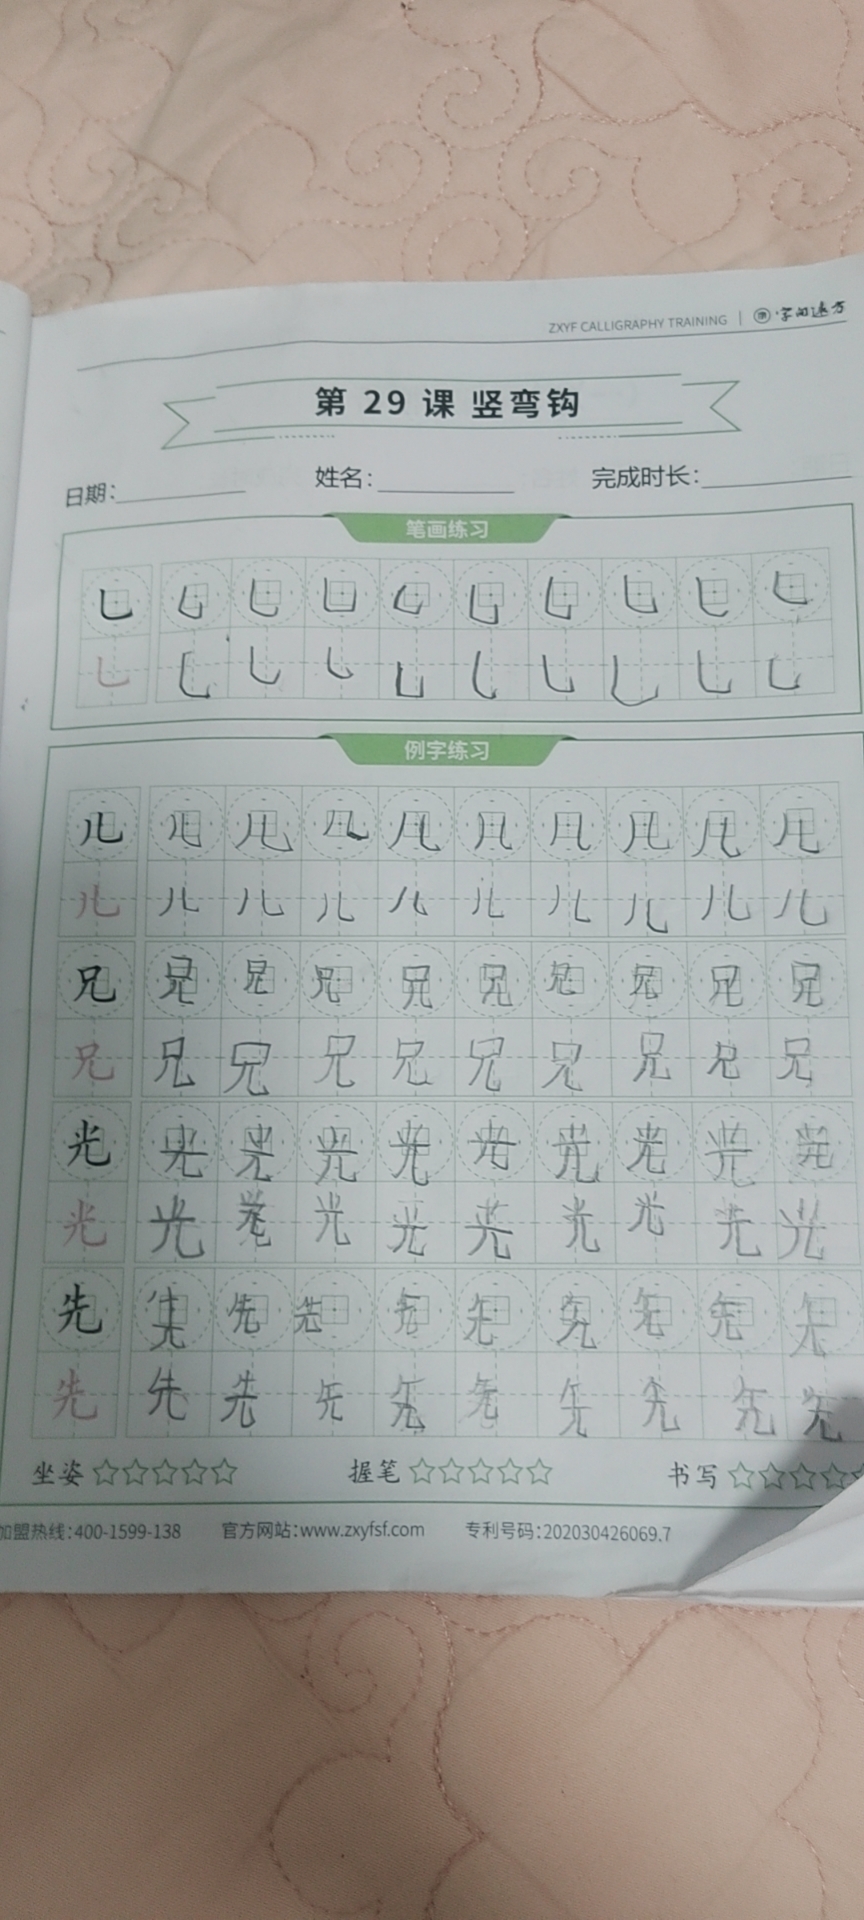 ZXYF CALLIGRAPHY TRAINING | 字如远方
第 29 课 竖弯钩
日期： 姓名： 完成时长：
笔画练习
乚 乚 乚 乚 乚 乚 乚 乚 乚 乚
乚 乚 乚 乚 乚 乚 乚 乚 乚 乚
例字练习
儿 儿 儿 儿 儿 儿 儿 儿 儿 儿
儿 儿 儿 儿 儿 儿 儿 儿 儿 儿
兄 兄 兄 兄 兄 兄 兄 兄 兄 兄
兄 兄 兄 兄 兄 兄 兄 兄 兄 兄
光 光 光 光 光 光 光 光 光 光
光 光 光 光 光 光 光 光 光 光
先 先 先 先 先 先 先 先 先 先
先 先 先 先 先 先 先 先 先 先
坐姿☆☆☆☆☆ 握笔☆☆☆☆☆ 书写☆☆☆☆☆
加盟热线：400-1599-138 官方网站：www.zxyfsf.com 专利号码：202030426069.7